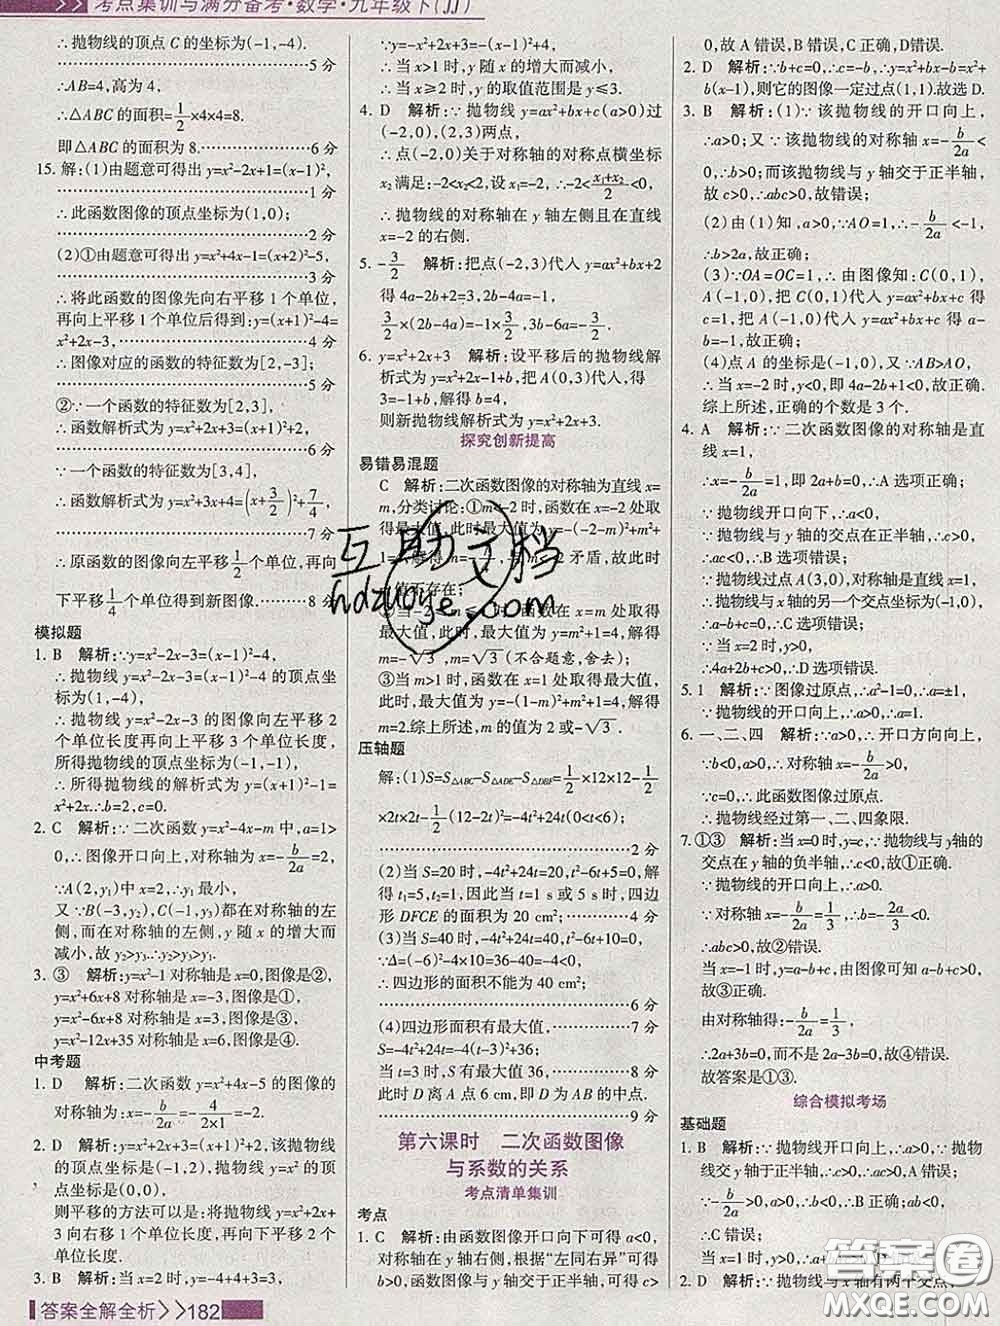 考点集训与满分备考·数学·九年级下(JJ)
∴抛物线的顶点 C 的坐标为(-1,-4).
5 分
∴AB=4,高为 4,
∴△ABC 的面积=1/2×4×4=8.
即△ABC 的面积为 8. 6 分
15. 解:(1)由题意可得出 y=x²-2x+1=(x-1)²,
1 分
∴此函数图像的顶点坐标为(1,0);
2 分
(2)①由题意可得出 y=x²+4x-1=(x+2)²-5,
3 分
∴将此函数的图像先向右平移 1 个单位,
再向上平移 1 个单位后得到:y=(x+1)²-4=
x²+2x-3, 4 分
∴图像对应的函数的特征数为[2,-3];
5 分
②∵一个函数的特征数为[2,3],
∴函数解析式为 y=x²+2x+3=(x+1)²+2,
6 分
∵一个函数的特征数为[3,4],
∴函数解析式为 y=x²+3x+4=(x+3/2)²+7/4,
7 分
∴原函数的图像向左平移 1/2 个单位,再向
下平移 1/4 个单位得到新图像. 8 分
模拟题
1. B 解析:∵y=x²-2x-3=(x-1)²-4,
∴抛物线 y=x²-2x-3 的顶点坐
标为(1,-4),
∴抛物线 y=x²-2x-3 的图像向左平移 2
个单位长度再向上平移 3 个单位长度,
所得抛物线的顶点坐标为(-1,-1),
∴所得抛物线的解析式为 y=(x+1)²-1=
x²+2x.∴b=2,c=0.
2. C 解析:∵二次函数 y=x²-4x-m 中,a=1>
0,∴图像开口向上,对称轴为 x=-b/2a=2,
∵A(2,y₁)中 x=2,∴y₁ 最小,
又∵B(-3,y₂),C(-1,y₃)都在对称轴的左
侧,而在对称轴的左侧,y 随 x 的增大而
减小,故 y₂>y₃.∴y₂>y₃>y₁.
3. ③ 解析:y=x²-1 对称轴是 x=0,图像是②,
y=x²+6x+8 对称轴是 x=-3,图像是①,
y=x²-6x+8 对称轴是 x=3,图像是③,
y=x²-12x+35 对称轴是 x=6,图像是④.
中考题
1. D 解析:二次函数 y=x²+4x-5 的图像的
对称轴为:x=-b/2a=-4/(2×1)=-2.
2. D 解析:y=x²+2x+3=(x+1)²+2,该抛物线
的顶点坐标是(-1,2),抛物线 y=x² 的顶
点坐标是(0,0),
则平移的方法可以是:将抛物线 y=x²+2x+
3 向右平移 1 个单位长度,再向下平移 2 个
单位长度.
3. B 解析:当 x=2 时,y=-4+4+3=3,
∵y=-x²+2x+3=-(x-1)²+4,
∴当 x>1 时,y 随 x 的增大而减小,
∴当 x≥2 时,y 的取值范围是 y≤3.
4. D 解析:∵抛物线 y=ax²+bx+c(a>0)过
(-2,0),(2,3)两点,
∴点(-2,0)关于对称轴的对称点横坐标
x₂ 满足:-2<x₂<2,画图,∴-2<(x₁+x₂)/2<0,
∴抛物线的对称轴在 y 轴左侧且在直线
x=-2 的右侧.
5. -3/2 解析:把点(-2,3)代入 y=ax²+bx+2
得 4a-2b+2=3,即 2b-4a=-1,
3/2×(2b-4a)=-1×3/2,3b-6a=-3/2.
6. y=x²+2x+3 解析:设平移后的抛物线解
析式为 y=x²+2x-1+b,把 A(0,3)代入,得
3=-1+b,解得 b=4,
则新抛物线解析式为 y=x²+2x+3.
探究创新提高
易错易混题
C 解析:二次函数图像的对称轴为直线 x=
m,分类讨论:①m<-2 时,函数在 x=-2 处取
得最大值,此时最大值为 y=-(-2-m)²+m²+
1=4,解得 m=-7/4,与 m<-2 矛盾,故此时
m 值不存在;
②当-2≤m≤1 时,函数在 x=m 处取得
最大值,此时,最大值为 y=m²+1=4,解得
m=-√3,m=√3(不合题意,舍去);
③当 m>1 时,函数在 x=1 处取得最大值,
此时,最大值为 y=-(1-m)²+m²+1=4,解得
m=2.综上所述,m 的值为 2 或-√3.
压轴题
解:(1)S=S△ABC-S△ADE-S△DBF=1/2×12×12-1/2
×2t×2t-1/2(12-2t)²=-4t²+24t(0<t<6);
2 分
(2)当 S=20 时,-4t²+24t=20,t²-6t+5=0,解
得 t₁=1,t₂=5,因此当 t=1 s 或 5 s 时,四边
形 DFCE 的面积为 20 cm²; 4 分
(3)当 S=40 时,-4t²+24t=40,t²-6t+10=0,
∵Δ=(-6)²-4×10=36-40=-4<0,
∴四边形的面积不能为 40 cm²;
6 分
(4)四边形面积有最大值, 7 分
S=-4t²+24t=-4(t-3)²+36;
当 t=3 时,S 有最大值 36. 8 分
此时 D 离 A 点 6 cm,即 D 为 AB 的中点.
9 分
第六课时 二次函数图像
与系数的关系
考点清单集训
考点
1. C 解析:由函数图像开口向下可得 a<0,
对称轴在 y 轴右侧,根据“左同右异”可得
b>0,函数图像与 y 轴交于正半轴,可得 c>
0,故 A 错误,B 错误,C 正确,D 错误.
2. D 解析:∵b+c=0,∴c=-b,∴y=x²+bx-b=x²+
b(x-1),则它的图像一定过点(1,1).故选 D.
3. B 解析:(1)∵该抛物线的开口向上,
∴a>0;又∵该抛物线的对称轴 x=-b/2a
<0,∴b>0;而该抛物线与 y 轴交于正半轴,故
c>0,∴abc>0,故错误;
(2)由(1)知,a>0,∵AO=1,∴-b/2a<-1,
∴b>2a,故正确;
(3)∵OA=OC=1,∴由图像知:C(0,1)代
A(-1,0),把 C(0,1)代入 y=ax²+bx+c 得
c=1,把 A(-1,0)代入 y=ax²+bx+c 得 a-
b=-1,故正确;
(4)点 A 的坐标是(-1,0),又∵AB>AO,
∴当 x=-2 时,y<0,即 4a-2b+1<0,故正确.
综上所述,正确的个数是 3 个.
4. A 解析:∵二次函数图像的对称轴是直
线 x=1,
∴x=-b/2a=1,即 2a+b=0,A 选项正确;
∵抛物线开口向下,∴a<0,
∵抛物线与 y 轴的交点在正半轴,∴c>0,
∴ac<0,∴B 选项错误;
∵抛物线过点 A(3,0),对称轴是直线 x=1,
∴抛物线与 x 轴的另一个交点坐标为(-1,0),
∴a-b+c=0,∴C 选项错误;
∵当 x=2 时,y>0;
∴4a+2b+c>0,∴D 选项错误.
5. 1 解析:∵图像过原点,∴a²-1=0,∴a=±1,
∵抛物线的开口向上,∴a>0,∴a=1.
6. 一、二、四 解析:∵开口方向向上,
∴a>0,∵对称轴 x=-b/2a>0,∴b<0,
∵c=0,∴此函数图像过原点.
∴抛物线经过第一、二、四象限.
7. ①③ 解析:当 x=0 时,y=c,∵抛物线与 y 轴的
交点在 y 轴的负半轴,∴c<0,故①正确.
∵抛物线的开口向上,∴a>0.
∵对称轴 x=-b/2a=1/3,∴b=-2a/3<0.
∴abc>0,故②错误.
当 x=-1 时,y>0,即 a-b+c>0,
故③正确.
由对称轴得:-b/2a=1/3,
∴2a+3b=0,而不是 2a-3b=0,故④错误.
故答案是①③.
综合模拟考场
基础题
1. B 解析:∵抛物线开口向上,∴a>0,∵抛物
线交 y 轴于正半轴,∴c>0,A 错误;
∵-b/2a>0,a>0,∴b<0,B 正确;ab<0,
∴C 错误;
2. D 解析:∵抛物线与 x 轴有两个交点,
答案全解全析>>182
互助文档
hdzuoye.com
答案圈
MXQE.COM